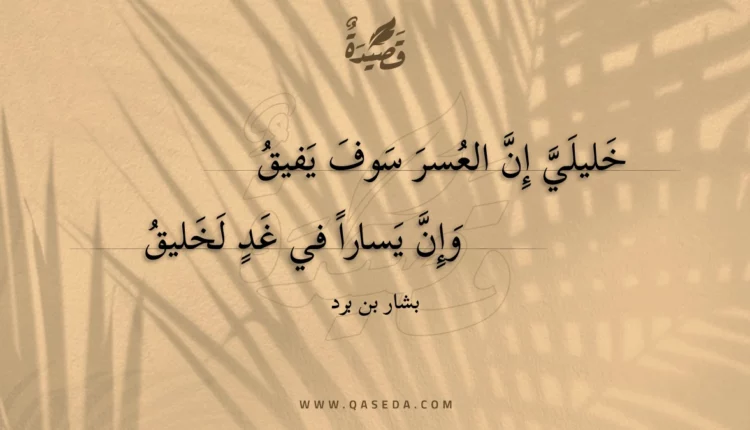 قَصِيدَةٌ
خَليلَيَّ إِنَّ العُسرَ سَوفَ يَفيقُ
وَإِنَّ يَساراً في غَدٍ لَخَليقُ
بشار بن برد
WWW.QASEDA.COM